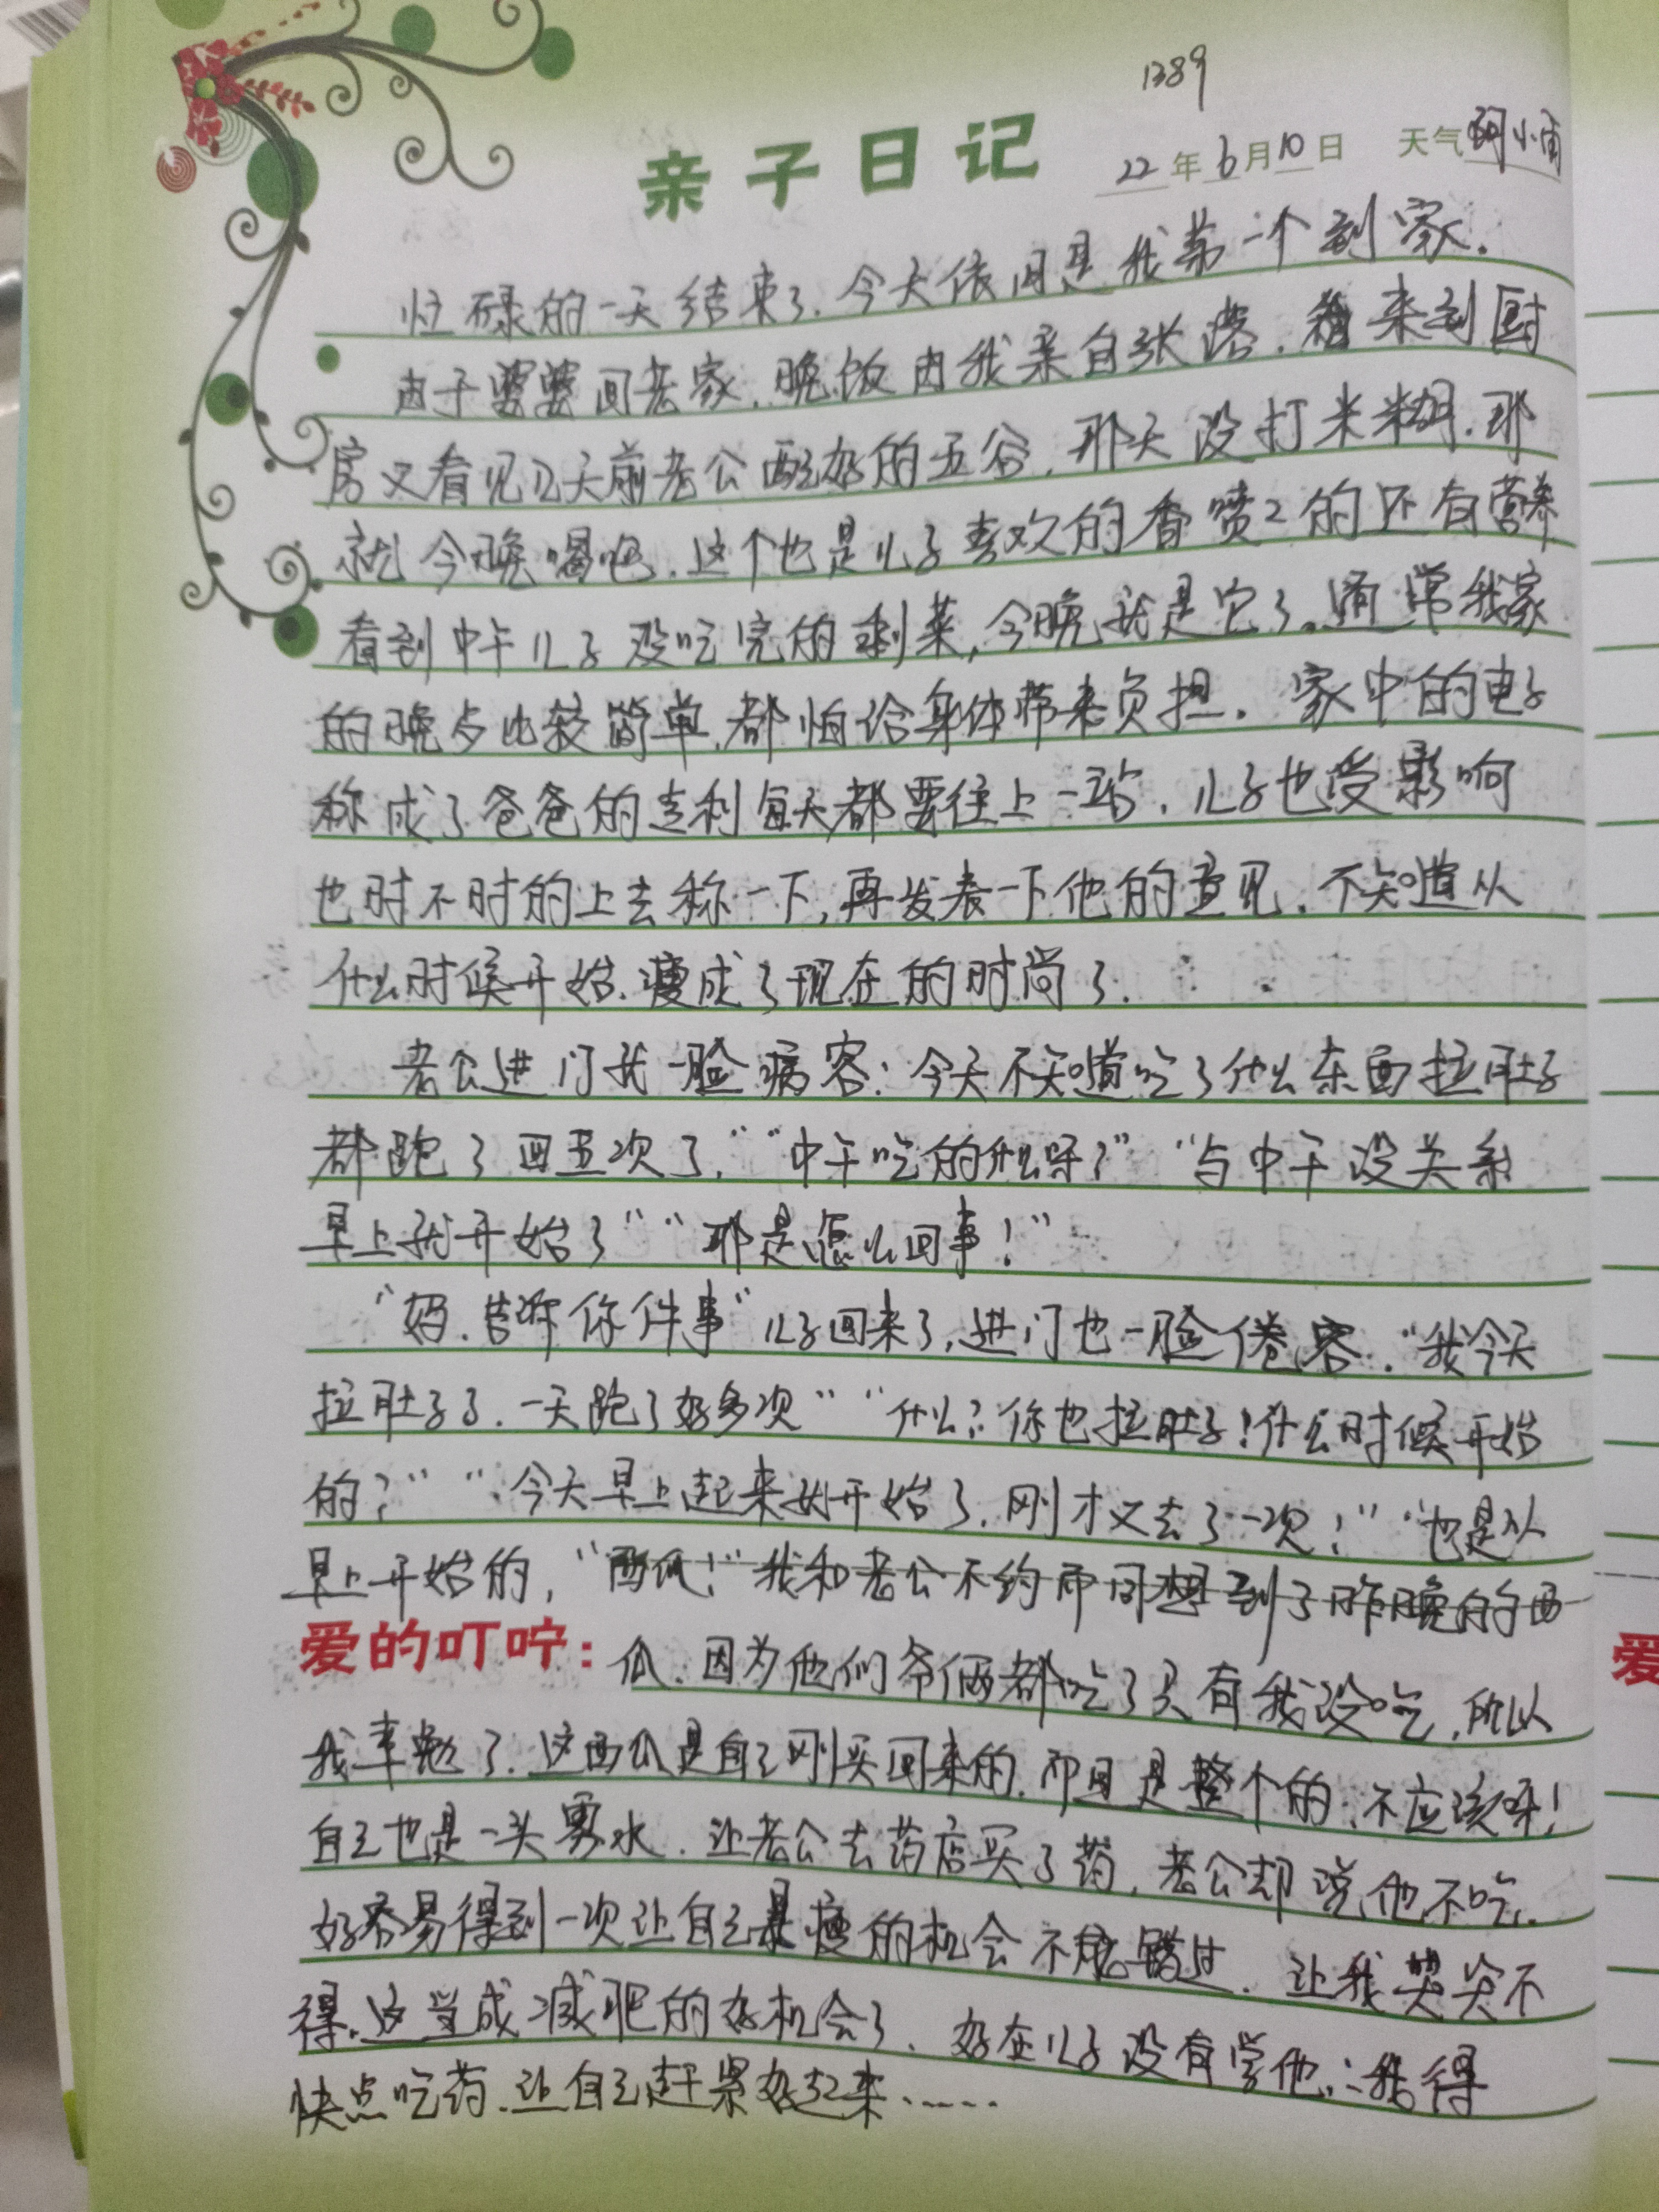 1389
亲子日记 22年6月10日 天气 阴小雨
忙碌的一天结束了.今天依旧是我第一个到家.
由于婆婆回老家.晚饭由我亲自张落.来到厨
房又看见几天前老公配好的五谷.那天没打米糊.那
就今晚喝吧.这个也是儿子喜欢的香喷2的还有营养
看到中午儿子没吃完的剩菜,今晚就是它了。通常我家
的晚歺比较简单,都怕给身体带来负担.家中的电子
称成了爸爸的专利每天都要往上一站.儿子也受影响
也时不时的上去称一下,再发表一下他的意见.不知道从
什么时候开始.瘦成了现在的时尚了.
老公进门就一脸病容:今天不知道吃了什么东西拉肚子
都跑了四五次了,""中午吃的什么呀?""与中午没关系
早上就开始了""那是怎么回事!"
"妈.告诉你件事"儿子回来了,进门也一脸倦容."我今天
拉肚子了.一天跑了好多次""什么?你也拉肚子!什么时候开始
的?""今天早上起来就开始了.刚才又去了一次!""也是从
早上开始的,"西瓜!"我和老公不约而同想到了昨晚的西
爱的叮咛:瓜.因为他们爷俩都吃了只有我没吃.所以
我幸勉了.这西瓜是自己刚买回来的.而且是整个的.不应该呀!
自己也是一头雾水.让老公去药店买了药,老公却说他不吃.
好容易得到一次让自己瘦的机会不能错过.让我哭笑不
得.这当成减肥的好机会了.好在儿子没有学他.:我得
快点吃药.让自己赶紧好起来……